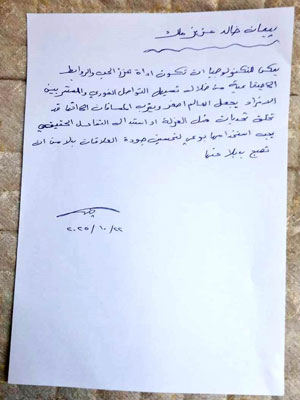 بيسان خالد عزيز ملك
يمكن للتكنولوجيا ان تكون اداة تعزز الحب والروابط
الاجتماعية من خلال تسهيل التواصل الفوري والمستمر بين
الافراد يجعل العالم اصغر ويقرب المسافات لكنها قد
تخلق تحديات مثل العزلة او استبدال التفاعل الحقيقي
يجب استخدامها بوعي لتحسين جودة العلاقات بلا من ان
تصبح بديلا عنها
٢٠٢٥/١٠/٢٢